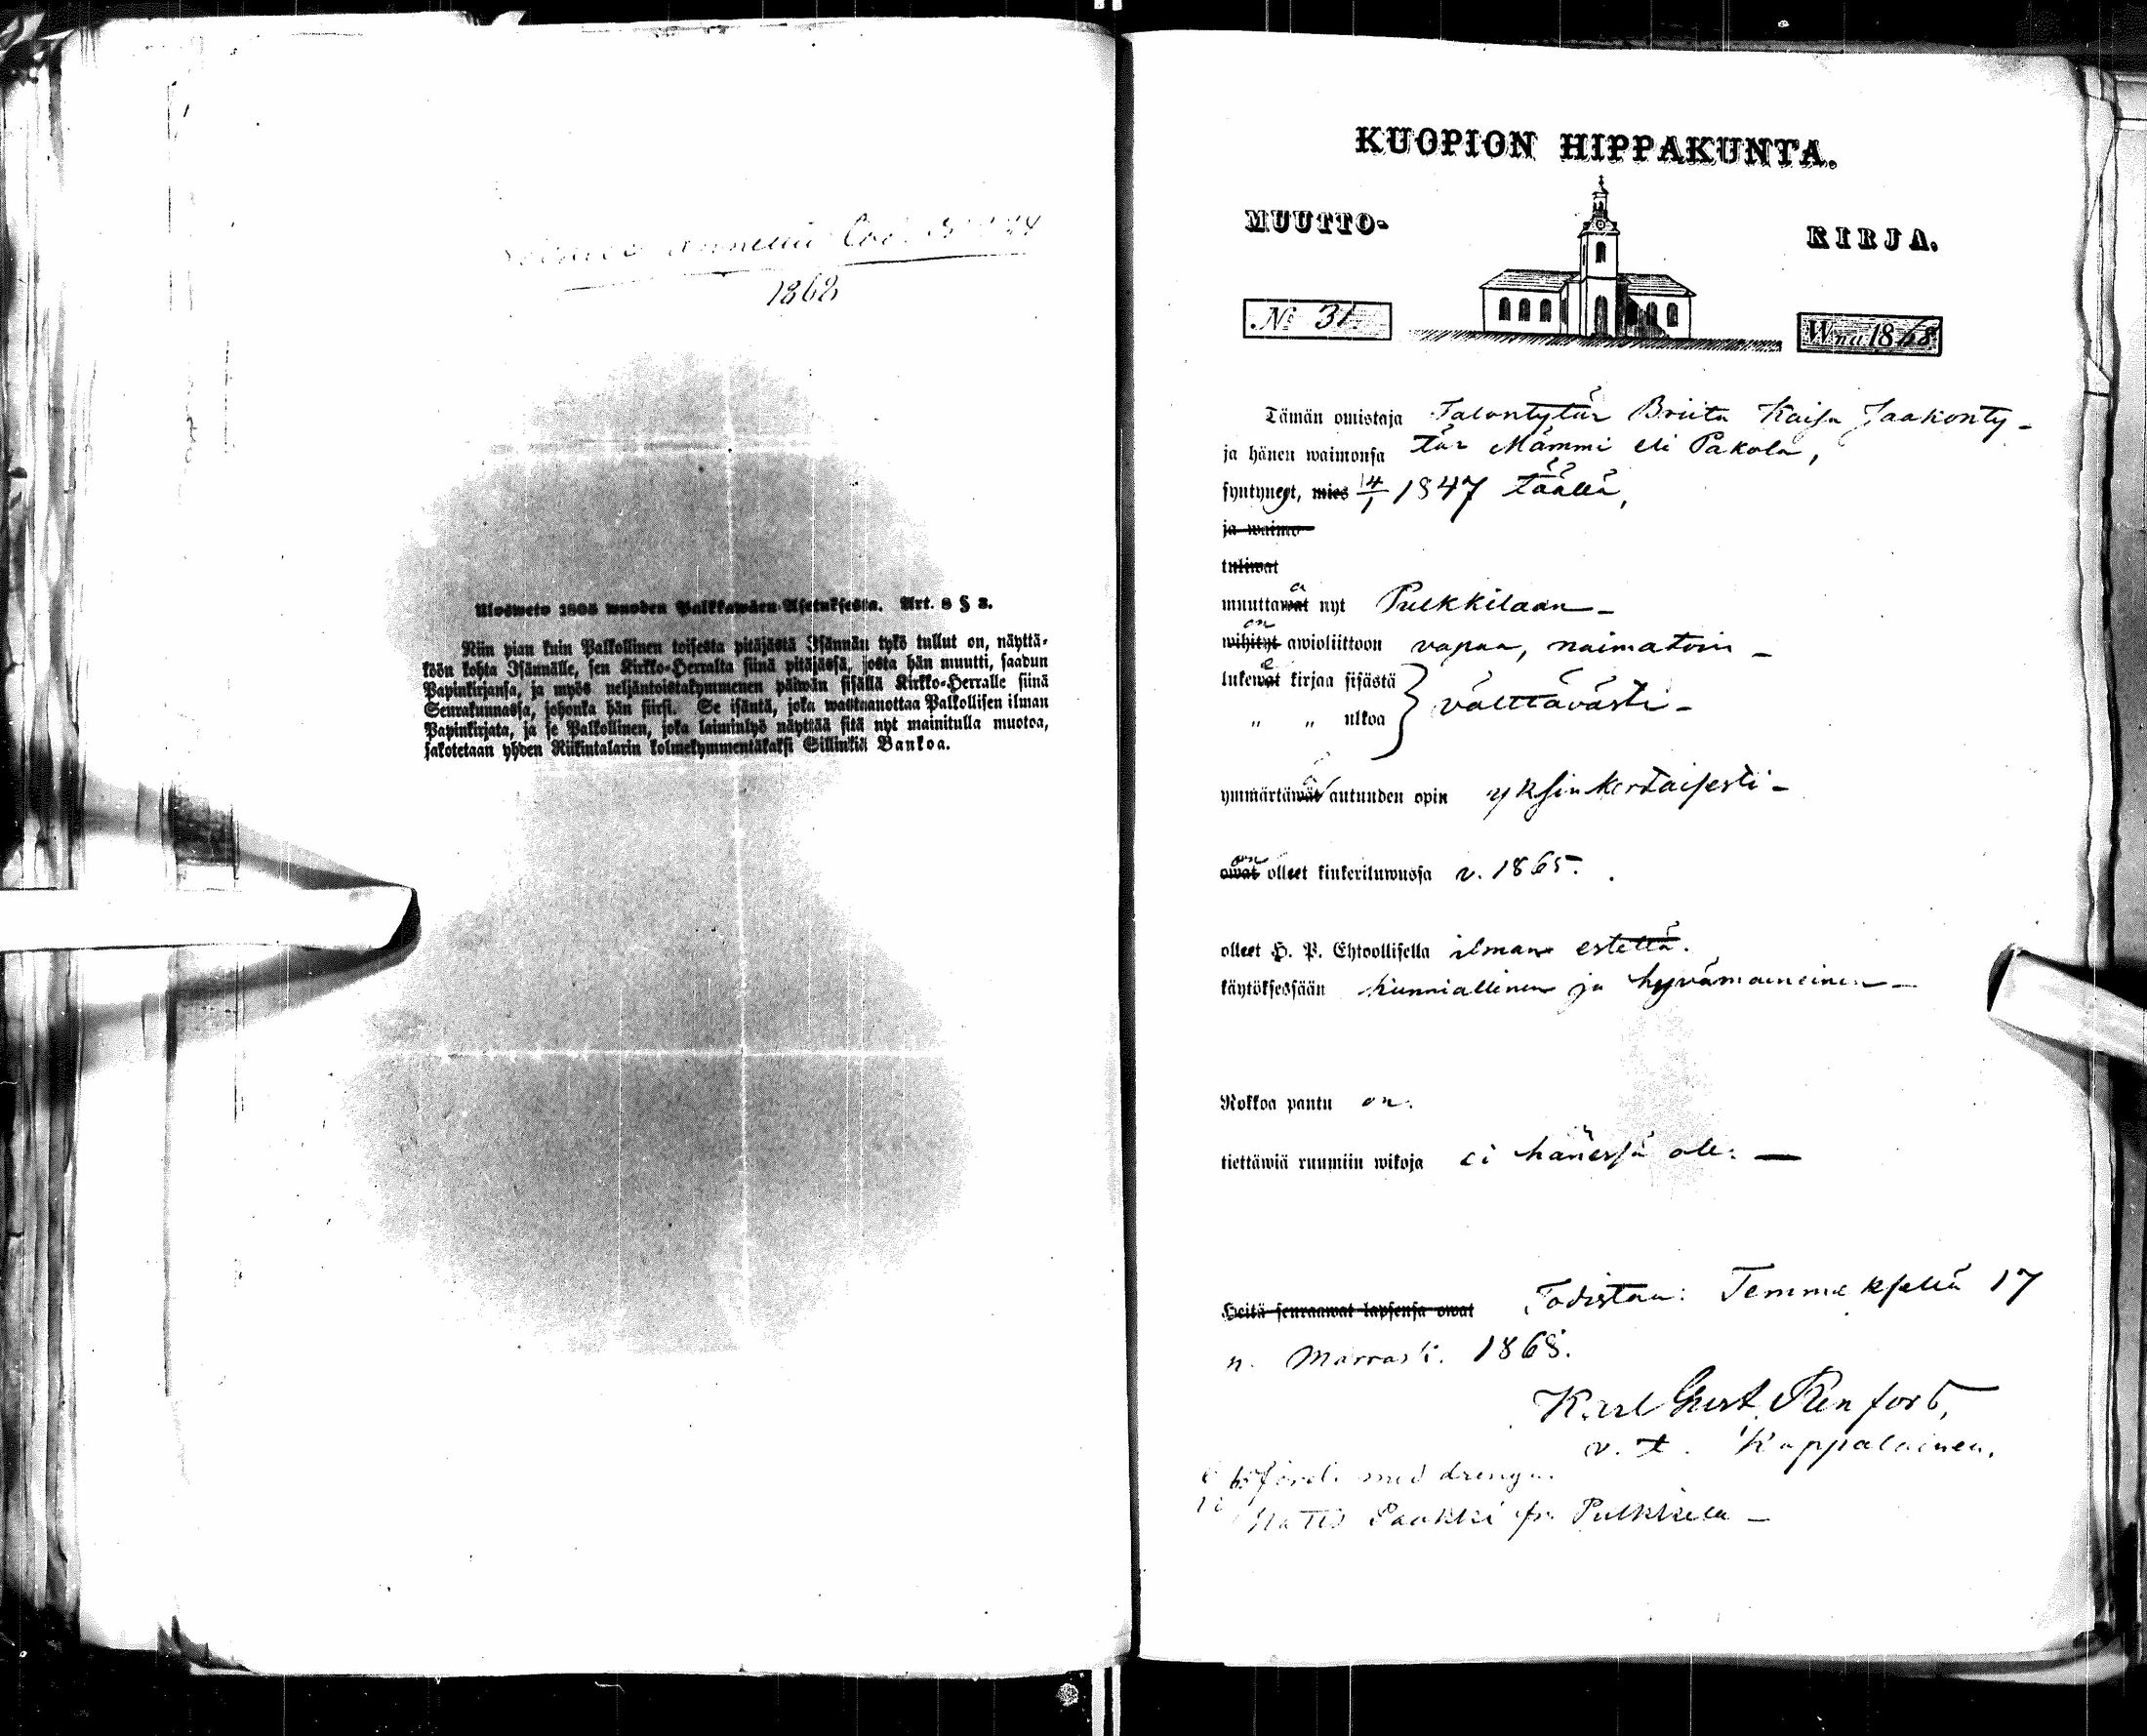 1868
Ulosweto 1805 wuoden Palkkawäen Asetuksesta. Art. 8 § 2.
Niin pian kuin Palkollinen toisesta pitäjästä Isännän tykö tullut on, näyttä-
köön kohta Isännälle, sen Kirkko-Herralta siinä pitäjässä, josta hän muutti, saadun
Papinkirjansa, ja myös neljäntoistakymmenen päiwän sisällä Kirkko-Herralle siinä
Seurakunnassa, johonka hän siirsi. Se isäntä, joka wastaanottaa Palkollisen ilman
Papinkirjata, ja se Palkollinen, joka laiminlyö näyttää sitä nyt mainitulla muotoa,
sakotetaan yhden Riikintalarin kolmekymmentäkaksi Sillinkiä Bankoa.
KUOPION HIPPAKUNTA.
MUUTTO- KIRJA.
No 31. Wna 1868
Tämän omistaja Talontytär Briita Kaisa Jaakonty-
ja hänen waimonsa tär Mämmi eli Pakola,
syntyneet, mies 14/1 1847 täällä,
ja waimo
tuliwat
muuttawat a nyt Pulkkilaan –
wihityt on awioliittoon vapaa, naimatoin –
lukewat e kirjaa sisästä
„ „ ulkoa välttävästi –
ymmärtäwät autuuden opin yksinkertaisesti –
owat on olleet kinkeriluwussa v. 1865.
olleet H. P. Ehtoollisella ilman estettä.
käytöksessään kunniallinen ja hyvämaineinen –
Rokkoa pantu on.
tiettäwiä ruumiin wikoja ei hänessä ole. —
Heitä seuraawat lapsensa owat Todistaa: Temmeksellä 17
n. Marrask. 1868.
Karl Gust. Renfors,
v. t. Kappalainen.
med dreng
Matts Paakki fr. Pulkkila –